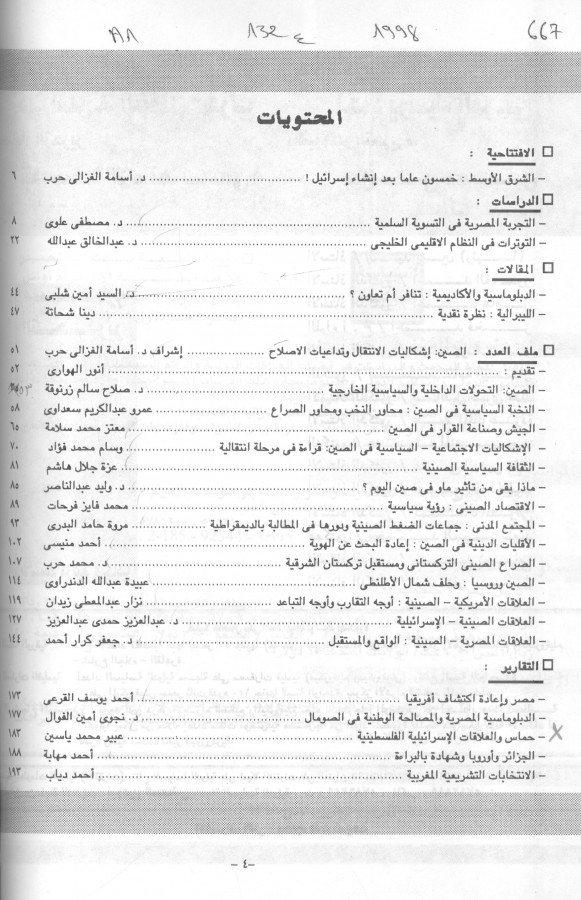 ٨٨١ 132 ع 1998 667
المحتويات
□ الافتتاحية :
– الشرق الأوسط : خمسون عاما بعد إنشاء إسرائيل ! ........ د. أسامة الغزالى حرب ٦
□ الدراسات :
– التجربة المصرية فى التسوية السلمية ........ د. مصطفى علوى ٨
– التوترات فى النظام الاقليمى الخليجى ........ د. عبدالخالق عبدالله ٢٢
□ المقالات :
– الدبلوماسية والأكاديمية : تنافر أم تعاون ؟ ........ د. السيد أمين شلبى ٤٤
– الليبرالية : نظرة نقدية ........ دينا شحاتة ٤٧
□ ملف العدد : الصين: إشكاليات الانتقال وتداعيات الاصلاح ........ إشراف د. أسامة الغزالى حرب ٥١
– تقديم : ........ أنور الهوارى ٥٢
– الصين: التحولات الداخلية والسياسية الخارجية ........ د. صلاح سالم زرنوقة
– النخبة السياسية فى الصين : محاور النخب ومحاور الصراع ........ عمرو عبدالكريم سعداوى ٥٨
– الجيش وصناعة القرار فى الصين ........ معتز محمد سلامة ٦٥
– الإشكاليات الاجتماعية – السياسية فى الصين: قراءة فى مرحلة انتقالية ........ وسام محمد فؤاد ٧٠
– الثقافة السياسية الصينية ........ عزة جلال هاشم ٨١
– ماذا بقى من تأثير ماو فى صين اليوم ؟ ........ د. وليد عبدالناصر ٨٥
– الاقتصاد الصينى : رؤية سياسية ........ محمد فايز فرحات ٨٩
– المجتمع المدنى : جماعات الضغط الصينية ودورها فى المطالبة بالديمقراطية ........ مروة حامد البدرى ٩٣
– الأقليات الدينية فى الصين : إعادة البحث عن الهوية ........ أحمد منيسى ١٠٢
– الصراع الصينى التركستانى ومستقبل تركستان الشرقية ........ د. محمد حرب ١٠٧
– الصين وروسيا : وحلف شمال الأطلنطى ........ عبيدة عبدالله الدندراوى ١١٤
– العلاقات الأمريكية – الصينية : أوجه التقارب وأوجه التباعد ........ نزار عبدالمعطى زيدان ١١٩
– العلاقات الصينية – الإسرائيلية ........ د. عبدالعزيز حمدى عبدالعزيز ١٢٧
– العلاقات المصرية – الصينية : الواقع والمستقبل ........ د. جعفر كرار أحمد ١٤٤
□ التقارير :
– مصر وإعادة اكتشاف أفريقيا ........ أحمد يوسف القرعى ١٧٣
– الدبلوماسية المصرية والمصالحة الوطنية فى الصومال ........ د. نجوى أمين الفوال ١٧٧
– حماس والعلاقات الإسرائيلية الفلسطينية ........ عبير محمد ياسين ١٨٣
– الجزائر وأوروبا وشهادة بالبراءة ........ أحمد مهابة ١٨٨
– الانتخابات التشريعية المغربية ........ أحمد دياب ١٩٣
–٤–